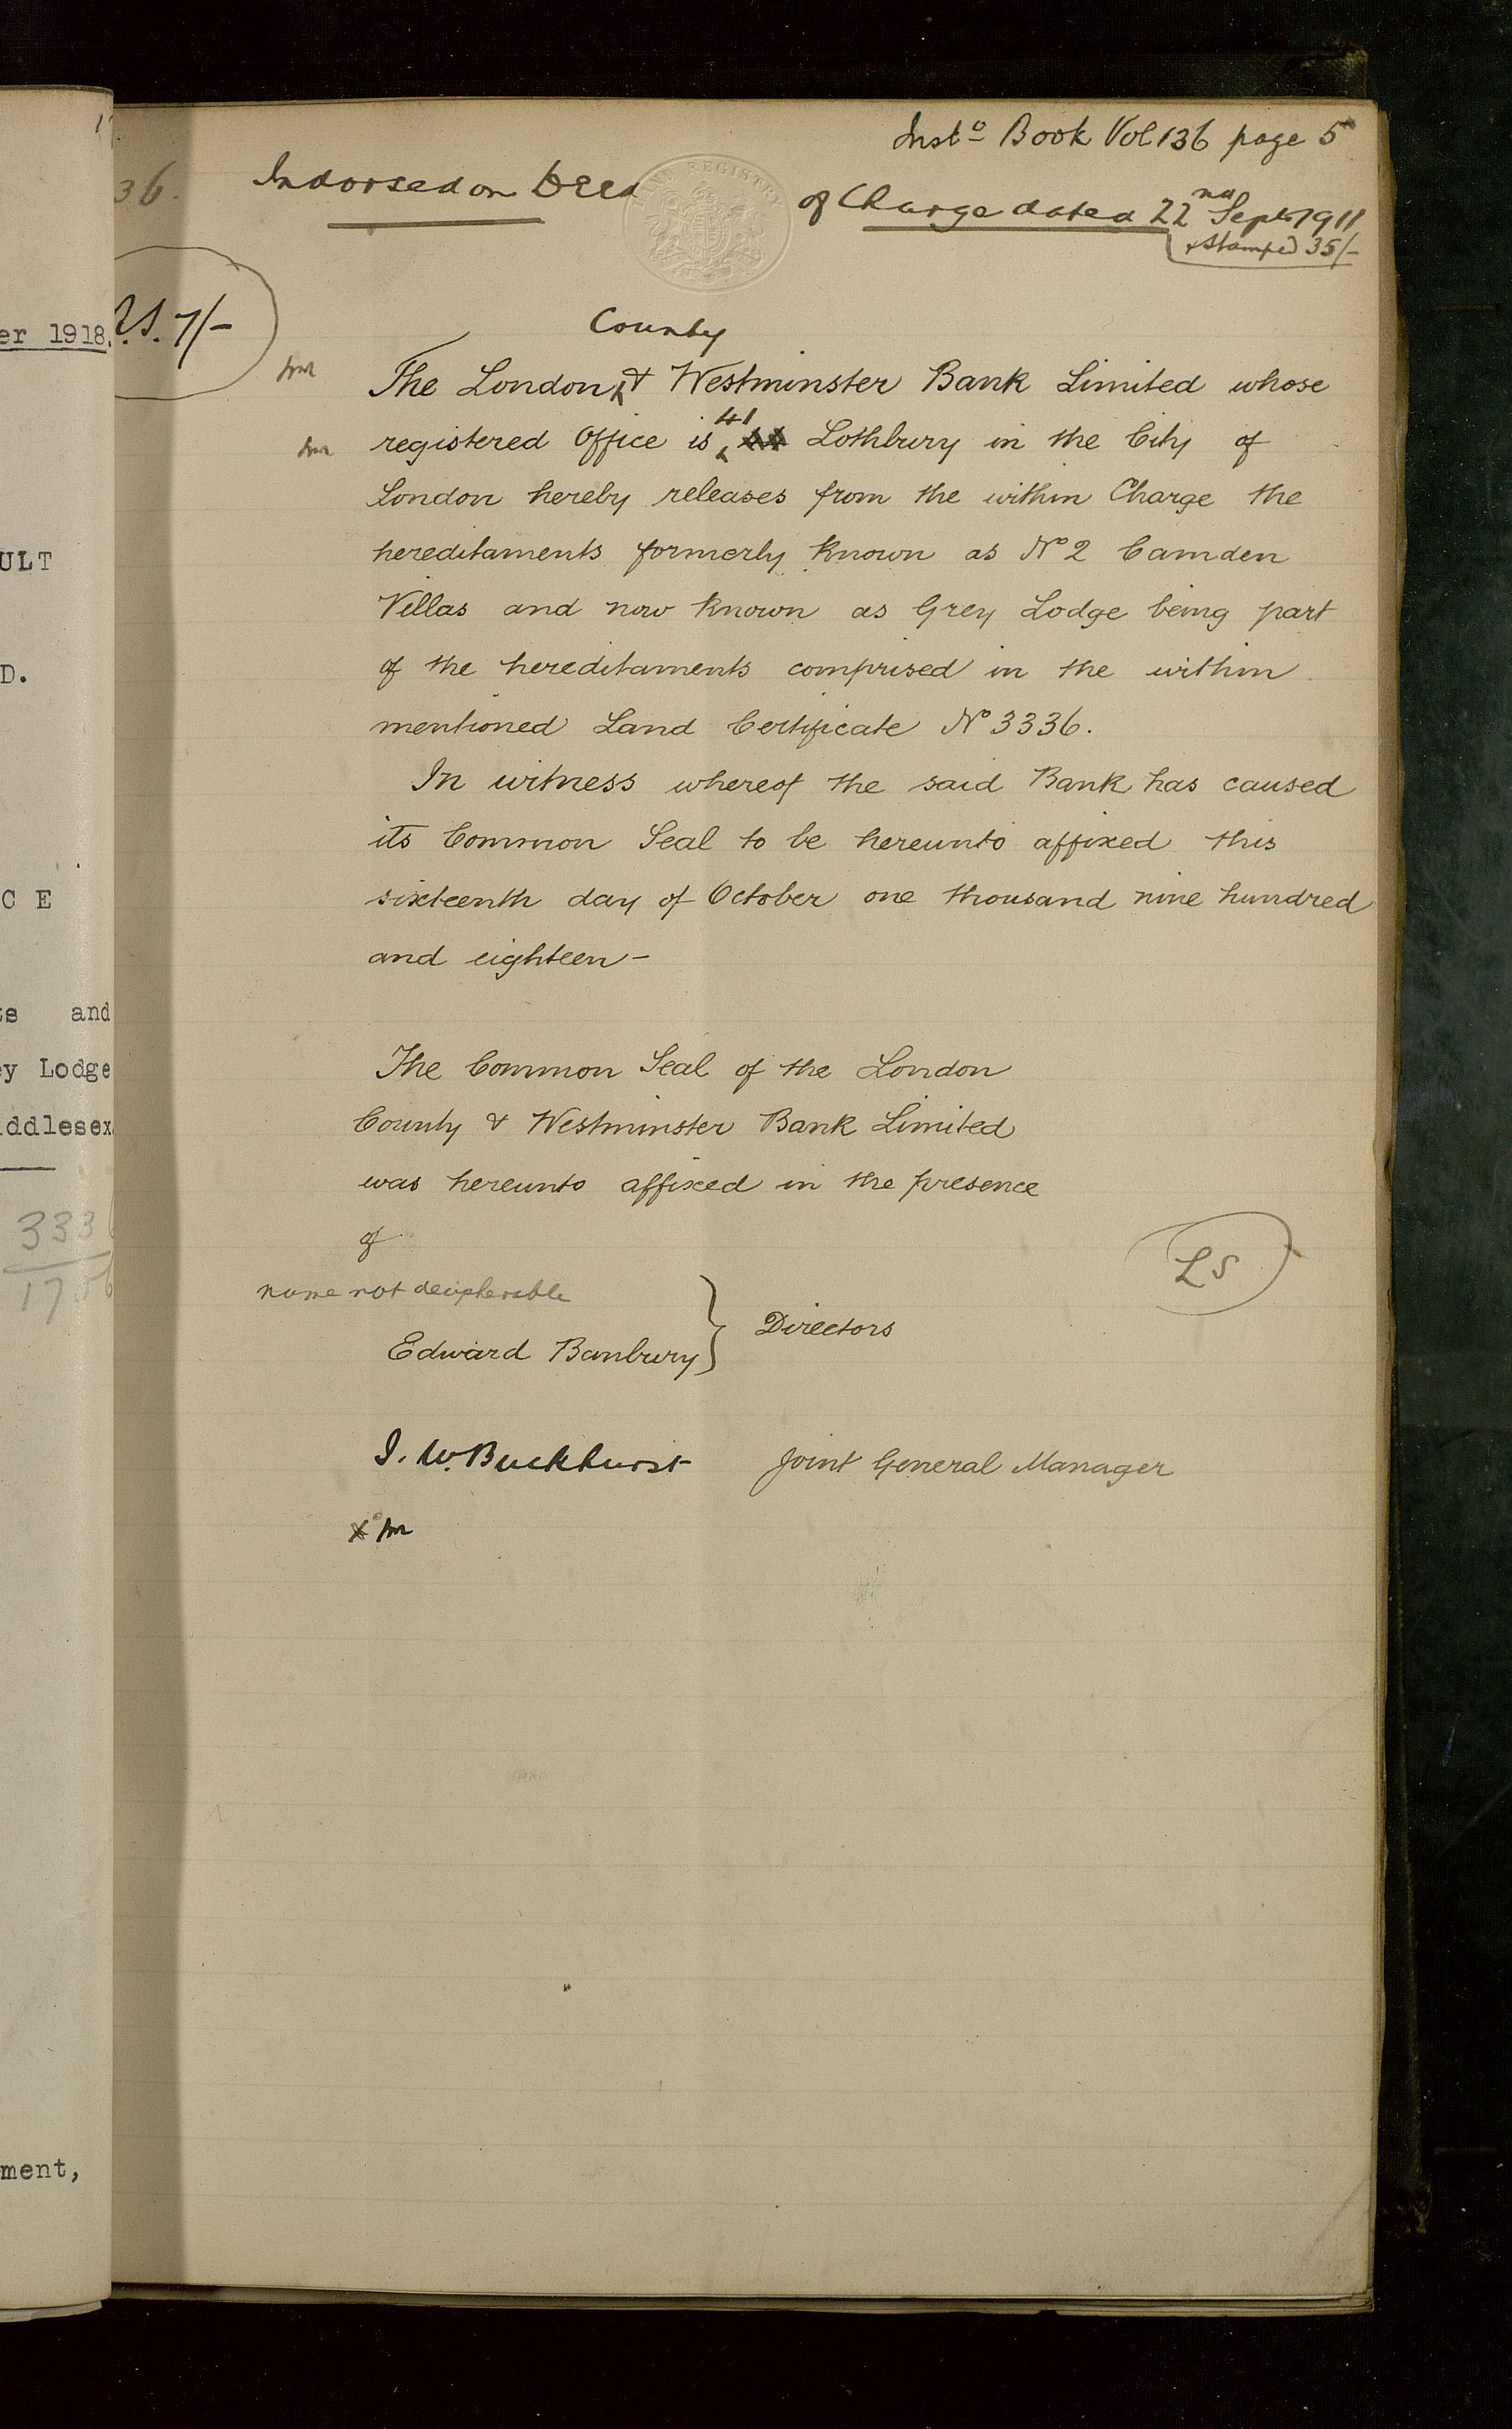 Inst⁰ Book Vol 136 page 5
36.
Indorsed on Deed of Charge dated 22nd Sept 1911
& Stamped 35/-
LAND REGISTRY
7/-
County
The London & Westminster Bank Limited whose
41
registered Office is Lothbury in the City of
London hereby releases from the within Charge the
hereditaments formerly known as Nº 2 Camden
Villas and now known as Grey Lodge being part
of the hereditaments comprised in the within
mentioned Land Certificate Nº 3336.
In witness whereof the said Bank has caused
its Common Seal to be hereunto affixed this
sixteenth day of October one thousand nine hundred
and eighteen -
The Common Seal of the London
County & Westminster Bank Limited
was hereunto affixed in the presence
of
LS
name not decipherable
Edward Banbury } Directors
I. W. Buckhurst Joint General Manager
er 1918.
ULT
D.
C E
ts and
ey Lodge
iddlesex
333
ment,